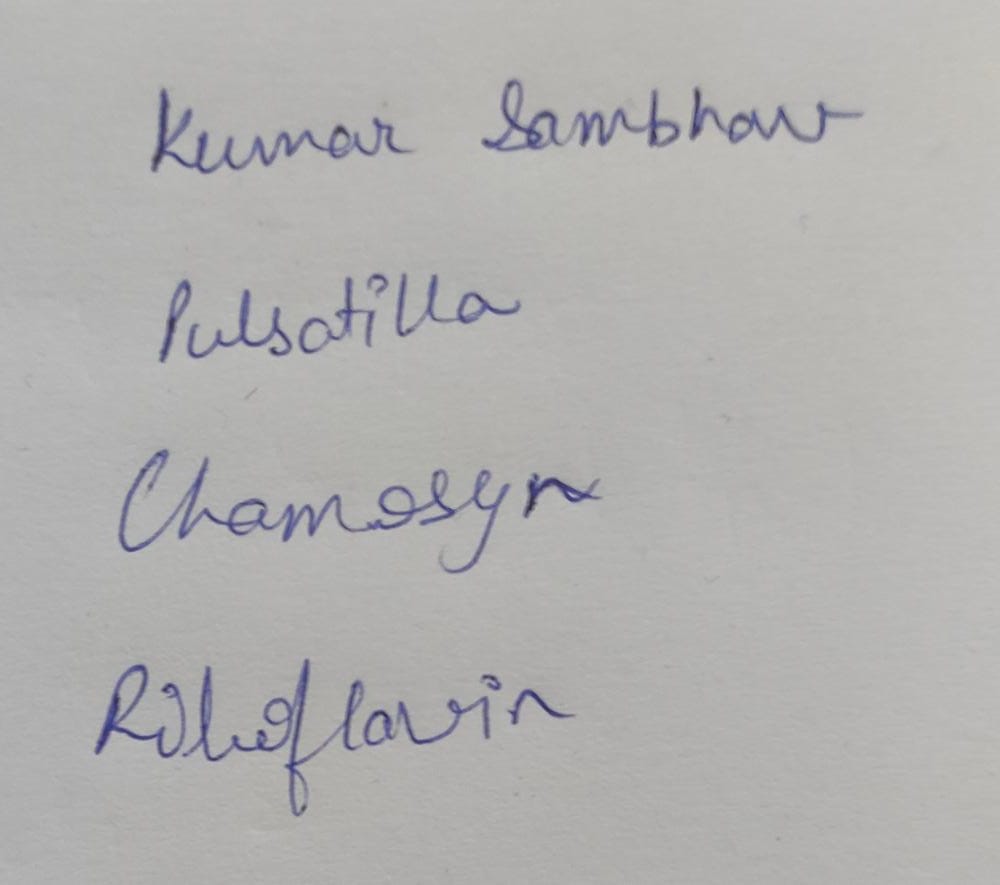 Kumar Sambhav
Pulsatilla
Chamosyn
Riboflavin